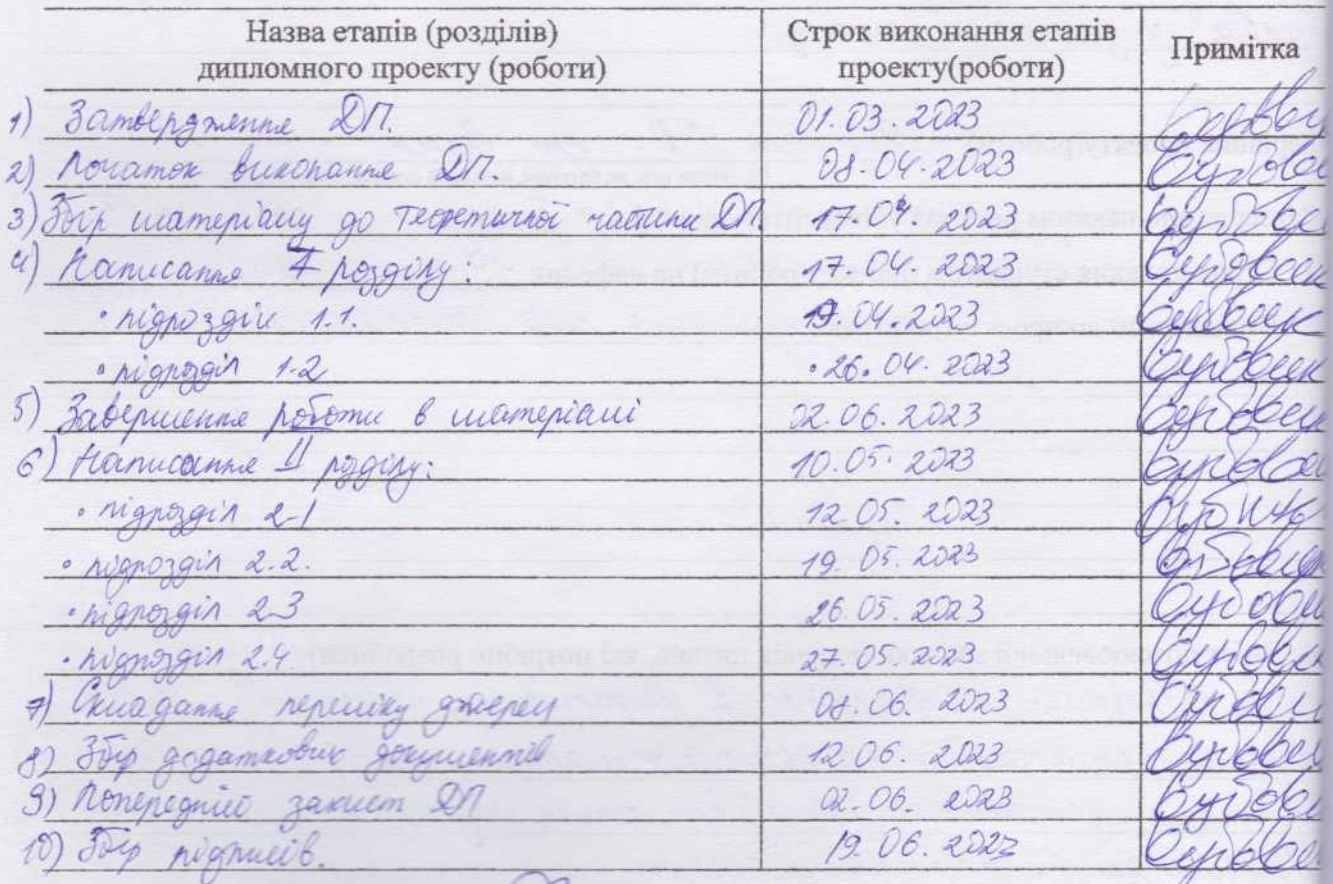 Назва етапів (розділів) Строк виконання етапів Примітка
дипломного проекту (роботи) проекту(роботи)
1) Затвердження ДП. 01.03.2023
2) Початок виконання ДП. 08.04.2023
3) Збір матеріалу до теоретичної частини ДП. 17.04.2023
4) Написання I розділу: 17.04.2023
• підрозділ 1.1. 19.04.2023
• підрозділ 1.2 26.04.2023
5) Завершення роботи в матеріалі 02.06.2023
6) Написання II розділу: 10.05.2023
• підрозділ 2.1 12.05.2023
• підрозділ 2.2. 19.05.2023
• підрозділ 2.3 26.05.2023
• підрозділ 2.4. 27.05.2023
7) Складання переліку джерел 08.06.2023
8) Збір додаткових документів 12.06.2023
9) Попередній захист ДП 02.06.2023
10) Збір підписів. 19.06.2023